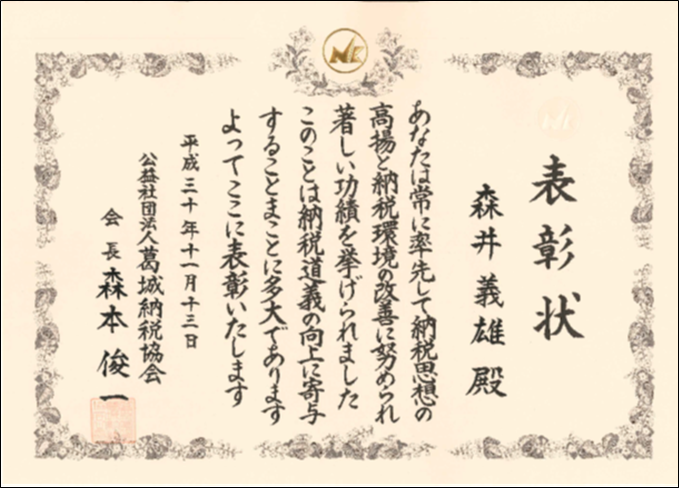 表彰状
森井義雄 殿
あなたは常に率先して納税思想の
高揚と納税環境の改善に努められ
著しい功績を挙げられました
このことは納税道義の向上に寄与
することまことに多大であります
よってここに表彰いたします
平成三十年十一月十三日
公益社団法人葛城納税協会
会長 森本俊一